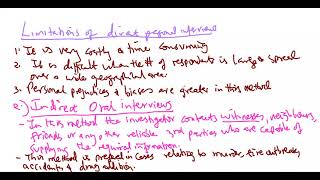 Limitations of direct personal interviews
1. It is very costly & time consuming
2. It is difficult when the # of respondents is large & spread
over a wide geographical area.
3. Personal prejudices & biases are greater in this method
2.) Indirect Oral interviews
- In this method the investigator contacts witnesses, neighbours,
friends or any other reliable 3rd parties who are capable of
supplying the required information.
- This method is prefered in cases relating to murder, fire outbreak,
accidents & drug addiction.